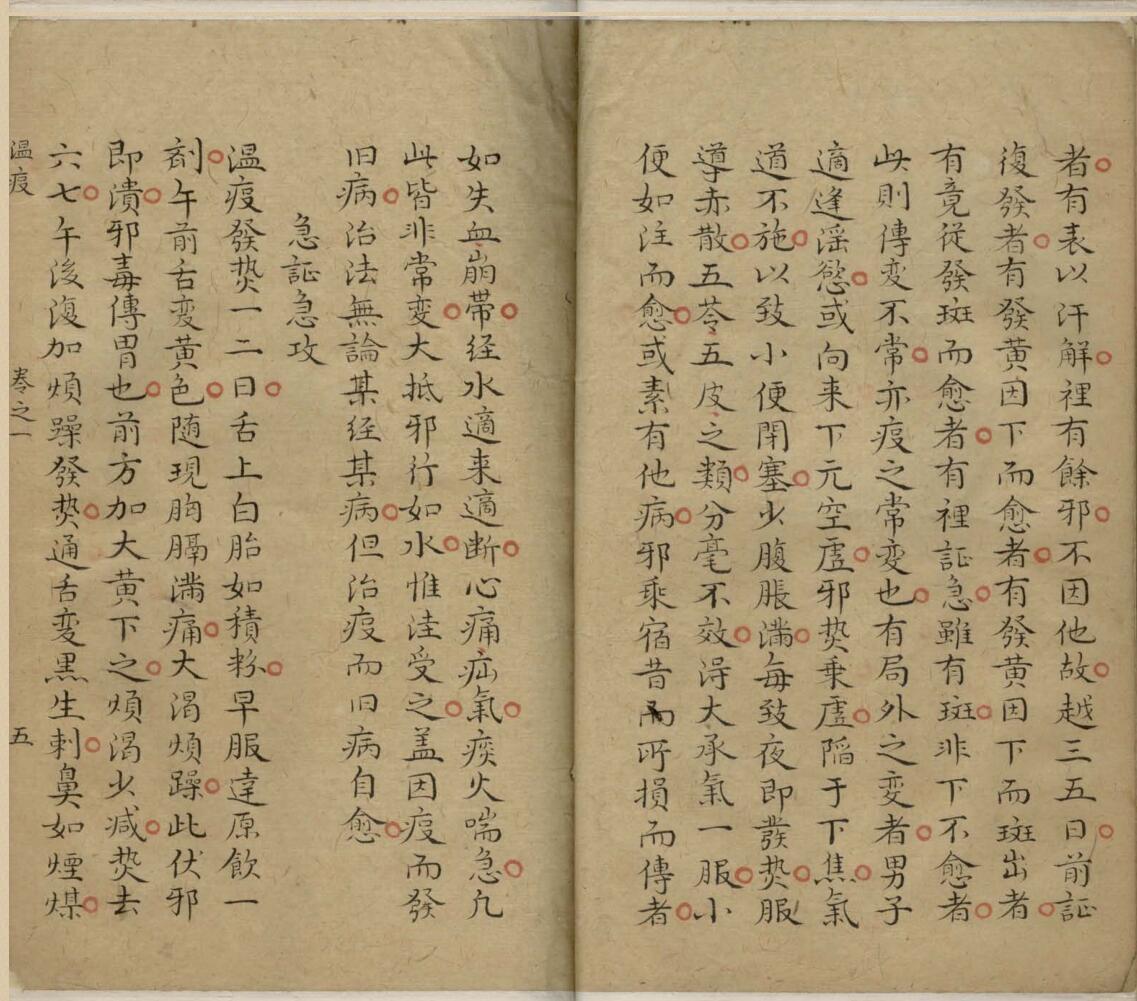 者有表以汗解裡有餘邪不因他故越三五日前証
復發者有發黃因下而愈者有發黃因下而斑出者
有竟從發斑而愈者有裡証急雖有斑非下不愈者
此則傳变不常亦疫之常变也有局外之变者男子
適逢滛慾或向来下元空虗邪㷫乘虗䧟于下焦氣
道不施以致小便閉塞少腹脹满每致夜即發㷫服
導赤散五苓五皮之類分毫不效淂大承氣一服小
便如注而愈或素有他病邪乘宿昔而所損而傳者
如失血崩带经水適来適断心痛疝氣痰火喘急凢
此皆非常变大抵邪行如水惟洼受之盖因疫而發
旧病治法無論某经某病但治疫而旧病自愈
急証急攻
温疫發㷫一二日舌上白胎如積粉早服達原飲一
剤午前舌变黄色随現胸膈满痛大渴煩躁此伏邪
即潰邪毒傳胃也前方加大黄下之煩渴少减㷫去
六七午後復加煩躁發㷫通舌变黒生刺鼻如煙煤
温疫
卷之一
五